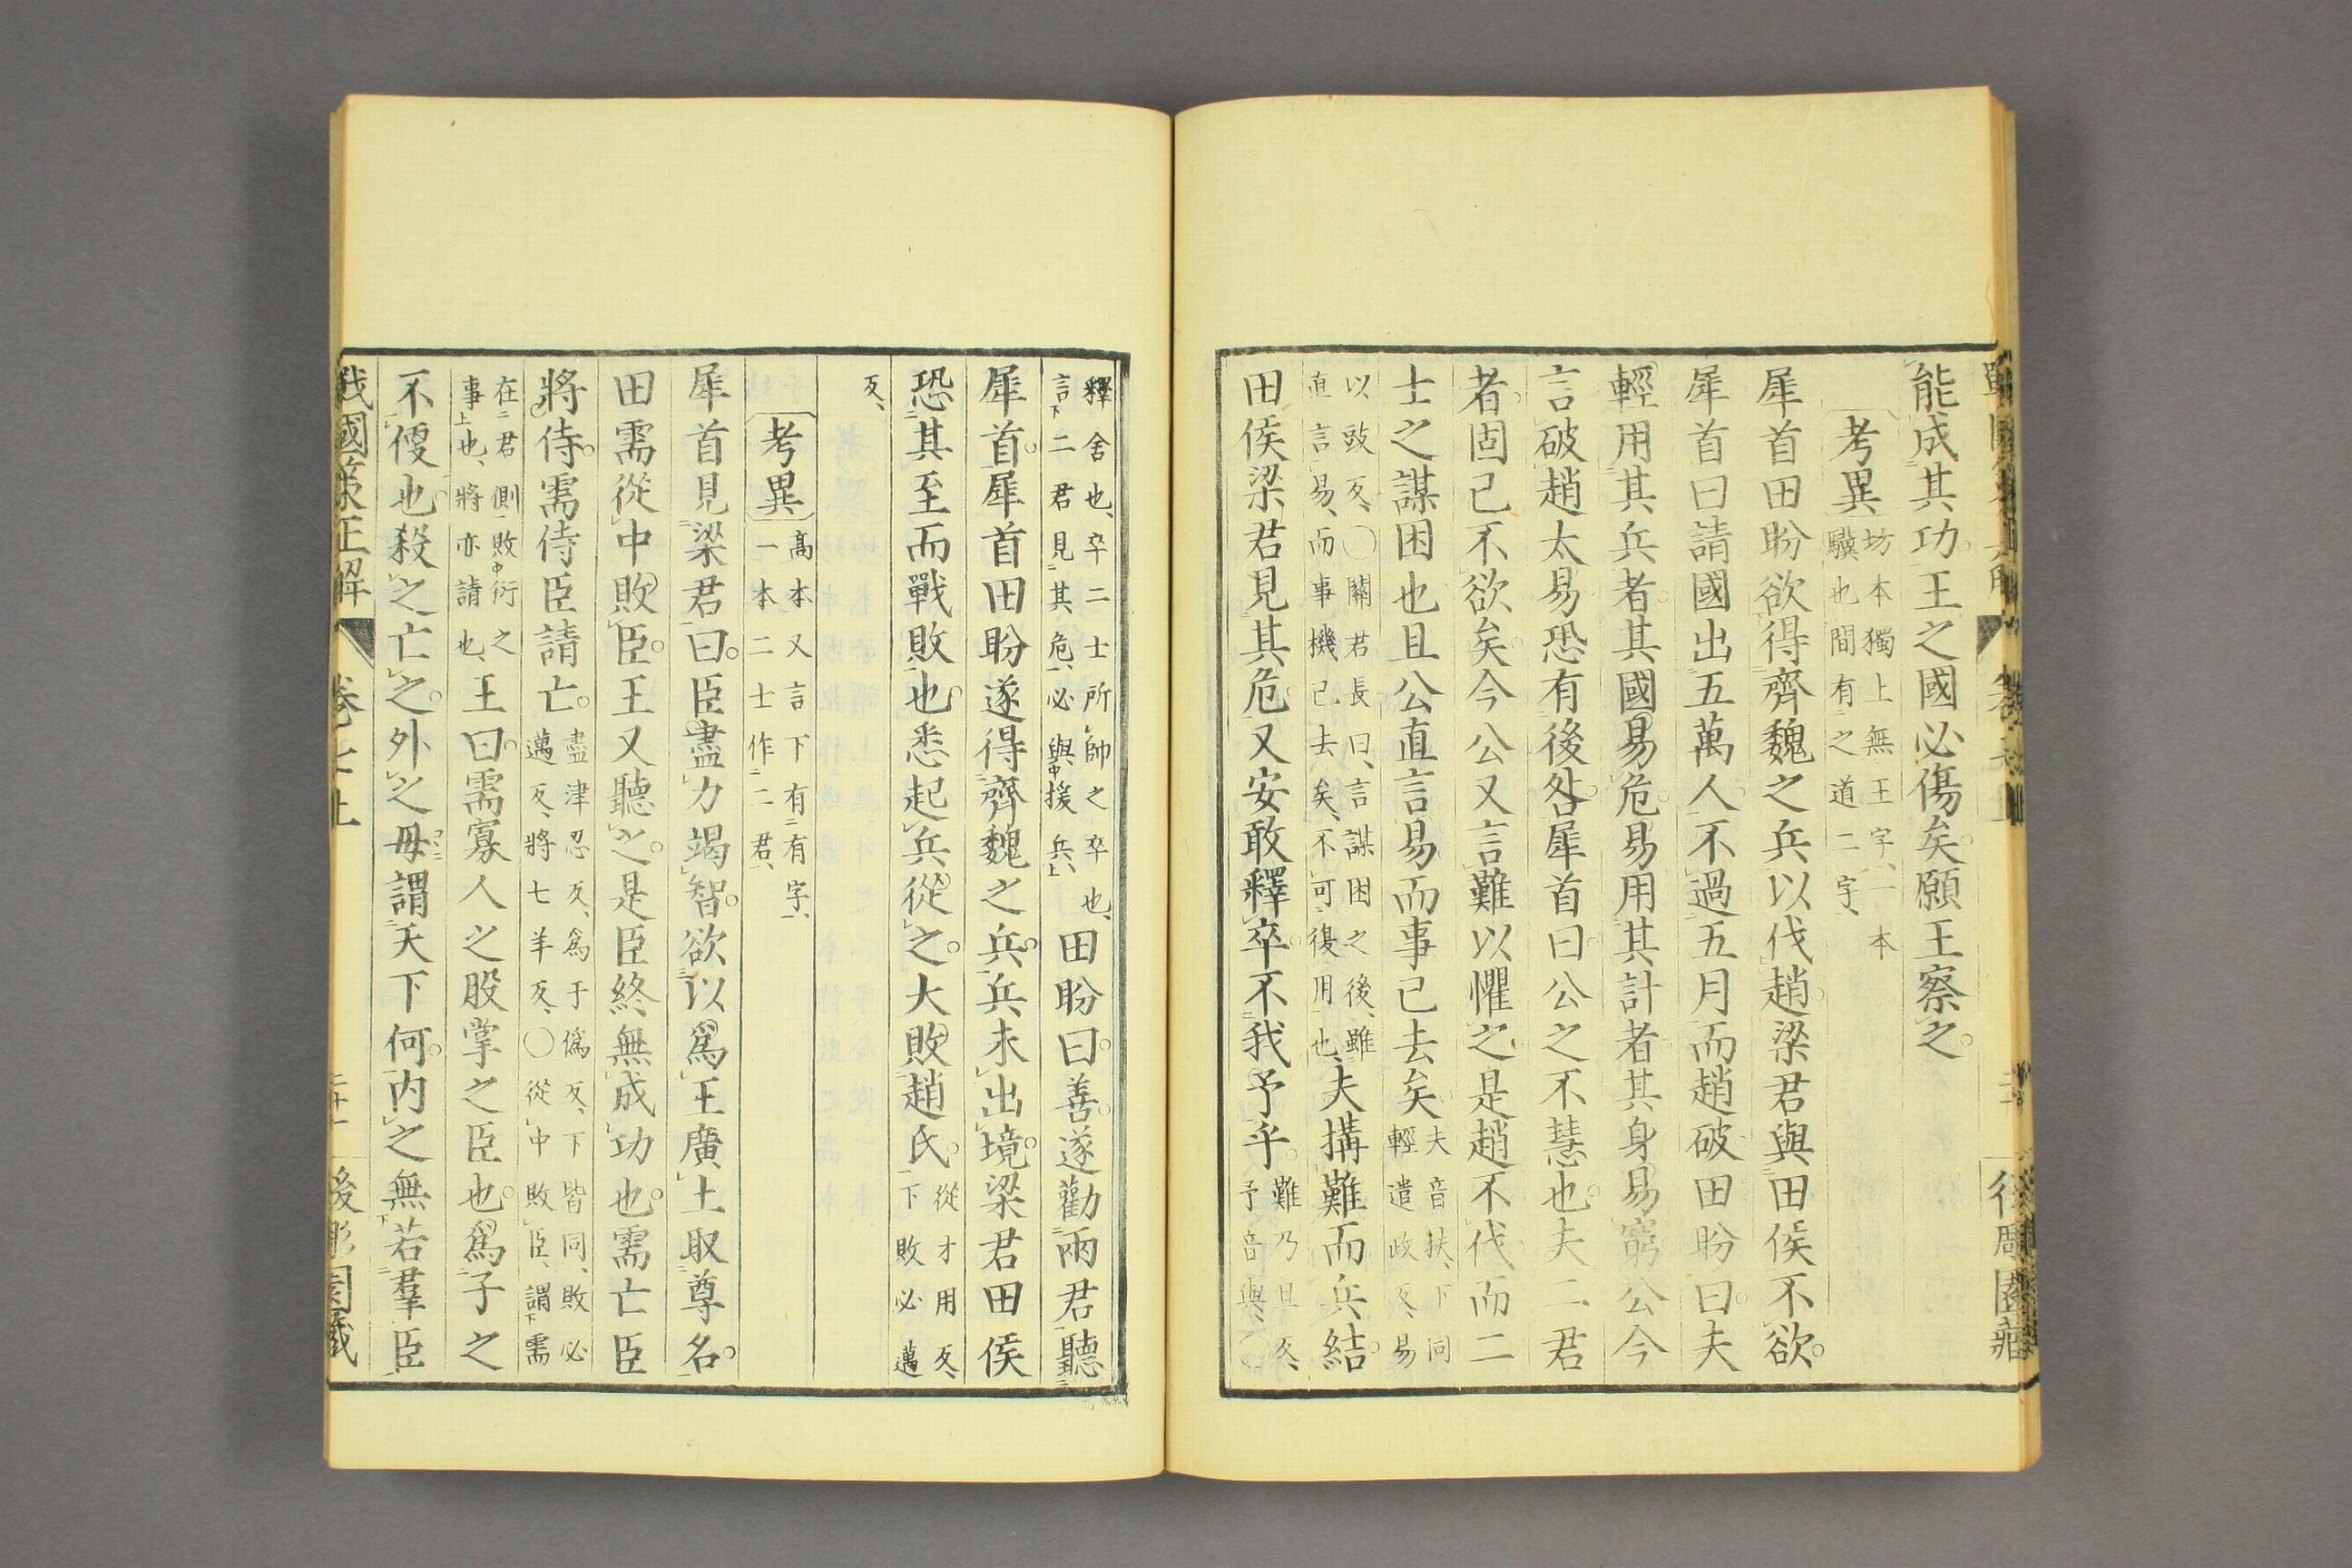 能成其功王之國必傷矣願王察之
考異 坊本獨上無王字一本
驥也間有之道二字
犀首田盼欲得齊魏之兵以伐趙梁君與田侯不欲
犀首曰請國出五萬人不過五月而趙破田盼曰夫
輕用其兵者其國易危易用其計者其身易窮公今
言破趙太易恐有後咎犀首曰公之不慧也夫二君
者固已不欲矣今公又言難以懼之是趙不伐而二
士之謀困也且公直言易而事已去矣 夫音扶下同
輕遣政反易
以豉反○關君長曰言謀困之後雖
直言易而事機已去矣不可復用也 夫搆難而兵結
田侯梁君見其危又安敢釋卒不我予乎 難乃旦反
予音與○
釋舍也卒二士所帥之卒也
言下二君見其危必與中援兵上 田盼曰善遂勸兩君聽
犀首犀首田盼遂得齊魏之兵兵未出境梁君田侯
恐其至而戰敗也悉起兵從之大敗趙氏 從才用反
下敗必邁
反
考異 高本又言下有有字
一本二士作二君
犀首見梁君曰臣盡力竭智欲以爲王廣土取尊名
田需從中敗臣王又聽之是臣終無成功也需亡臣
將侍需侍臣請亡 盡津忍反爲于僞反下皆同敗必
邁反將七羊反○從中敗臣謂下需
在二君側敗中衍之
事上也將亦請也 王曰需寡人之股掌之臣也爲子之
不便也殺之亡之外之毋謂天下何內之無若羣臣
戰國策正解 卷七上 二十一 後彫園藏